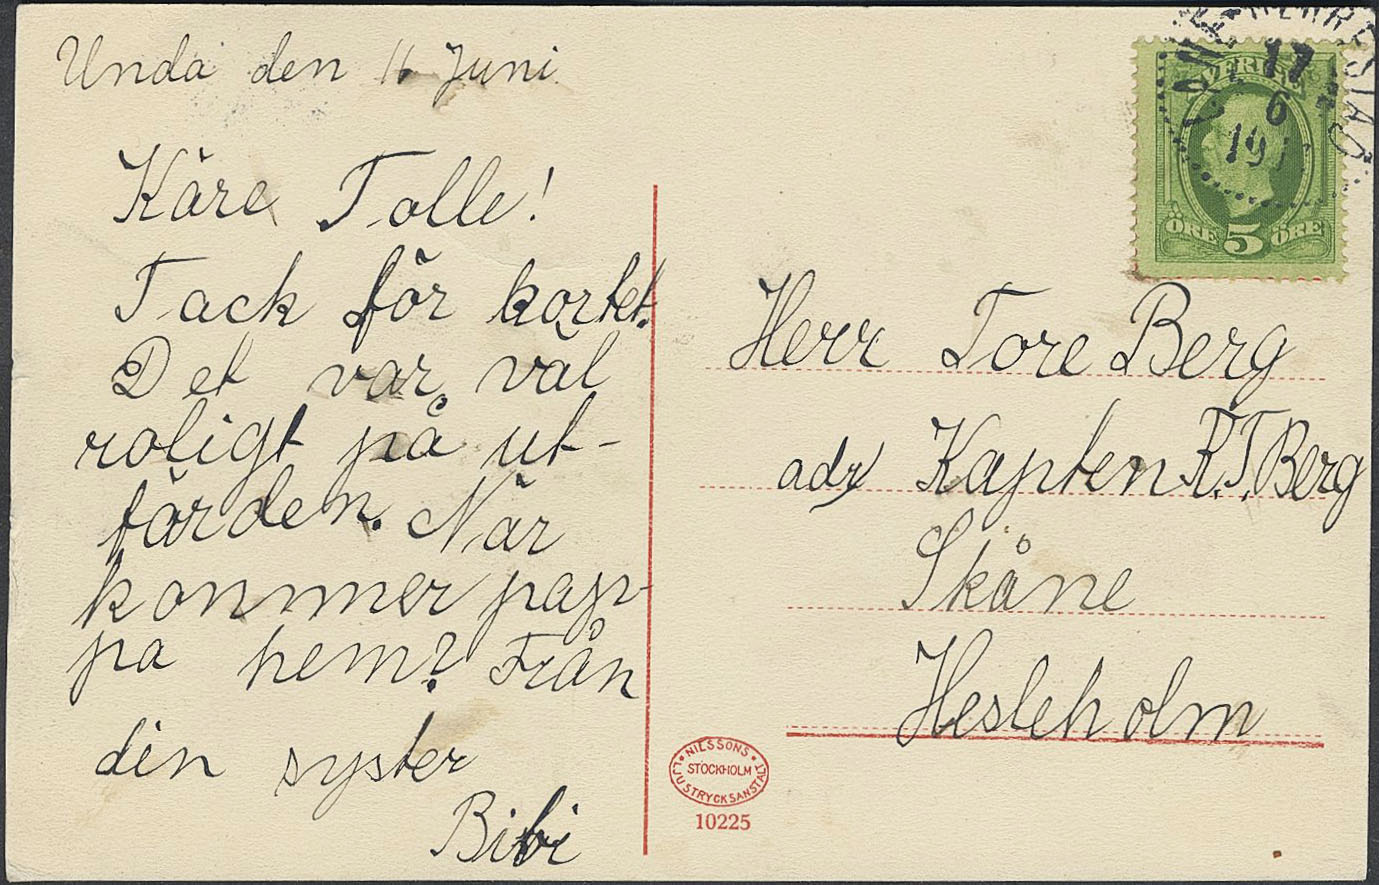 Unda den 16 Juni
Käre Tolle!
Tack för kortet.
Det var väl
roligt på ut-
färden. När
kommer pap-
pa hem? Från
din syster
Bibi
SVERIGE
17
6
191
ÖRE 5 ÖRE
Herr Tore Berg
adr Kapten R.T. Berg
Skåne
Hesleholm
NILSSONS
STOCKHOLM
LJUSTRYCKSANSTALT
10225